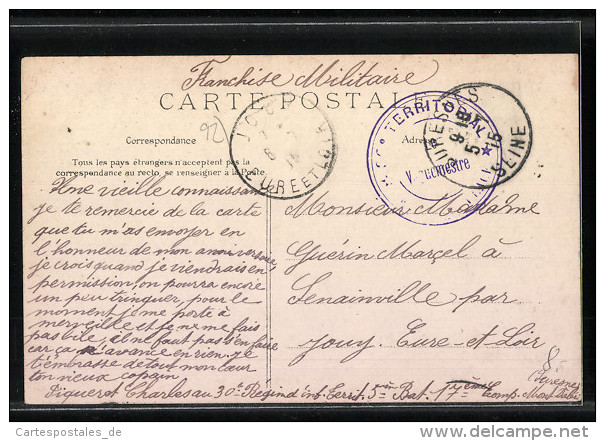 Franchise Militaire
CARTE POSTALE
Correspondance
Adresse
Tous les pays étrangers n'acceptent pas la
correspondance au recto, se renseigner à la Poste.
TERRITORIAL
SURESNES
SEINE
EURE ET LOIR
Une vieille connaissance
je te remercie de la carte
que tu m'as envoyer en
l'honneur de mon anniversaire,
je crois quand je viendrais en
permission, on pourra encore
un peu trinquer, pour le
moment je me porte à
merveille et je me fais
pas bile, il ne faut pas s'en faire
car ça n'avance en rien. je
t'embrasse de tout mon cœur
ton vieux copain
Monsieur Madame
Guérin Marcel à
Senainville par
Jouy. Eure-et-Loir
Charles au 30e Reg ind inf. Territ. 5me Bat. 17ème Comp.
Cartespostales_de
http://cartespostales.delcampe.net